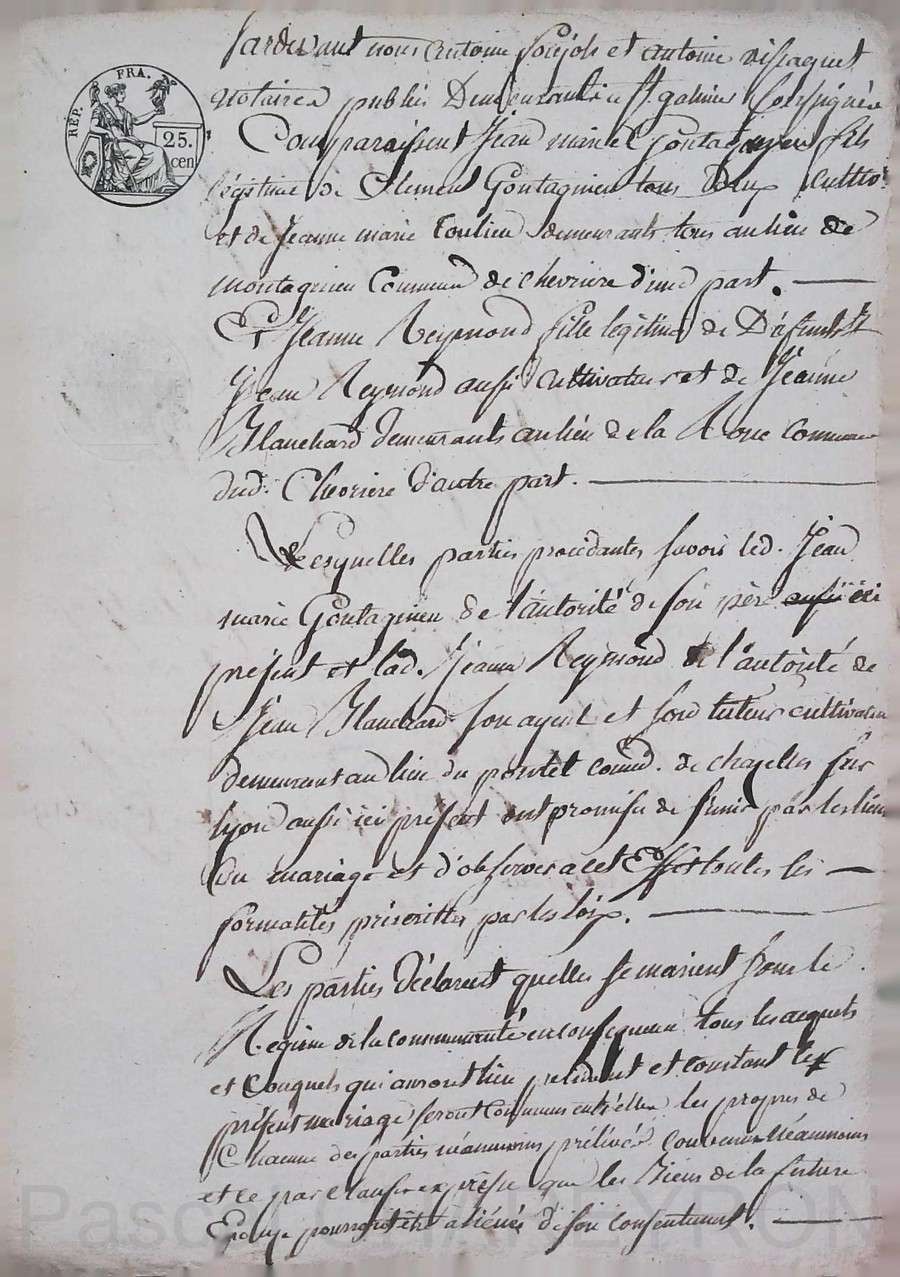 RÉP. FRA.
25.
cen
Pardevant nous Antoine et antoine
Notaires publics Demeurants a St. galmier soussignés
Comparaissent Jean marie Gontagnieu fils
légitime de Clement Gontagnieu tous Deux cultivr
et de Jeanne marie Coulieu demeurants tous au lieu de
montagnieu Commune de chevriere d'une part.
Et Jeanne Reymond fille legitime de Défunt
Jean Reymond aussi Cultivateur et de Jeanne
Blanchard demeurants au lieu de la Roue Commune
dud. Chevriere d'autre part.
Lesquelles parties procédantes savoir led. Jean
marie Gontagnieu de l'autorité de son père ici
présent et lad. Jeanne Reymond de l'autorité de
Jean Blanchard son ayeul et son tuteur cultivateur
demeurant au lieu du pontet comd. de chazelles sur
lyon aussi ici présent ont promis de s'unir par les liens
du mariage et d'observer a cet Effet toutes les
formalités préscrittes par les loix.
Les parties Déclarent quelles se marient sous le
Régime de la communauté en conséquence tous les acquets
et Conquets qui auront lieu pendant et constant le
présent mariage seront Communs entr'elles les propres de
Chacune des parties néanmoins prélevés. Convenu Néanmoins
et ce par Clause expresse que les Biens de la future
Epouse pourront être aliénés de son consentement.
Pascal CHAREYRON